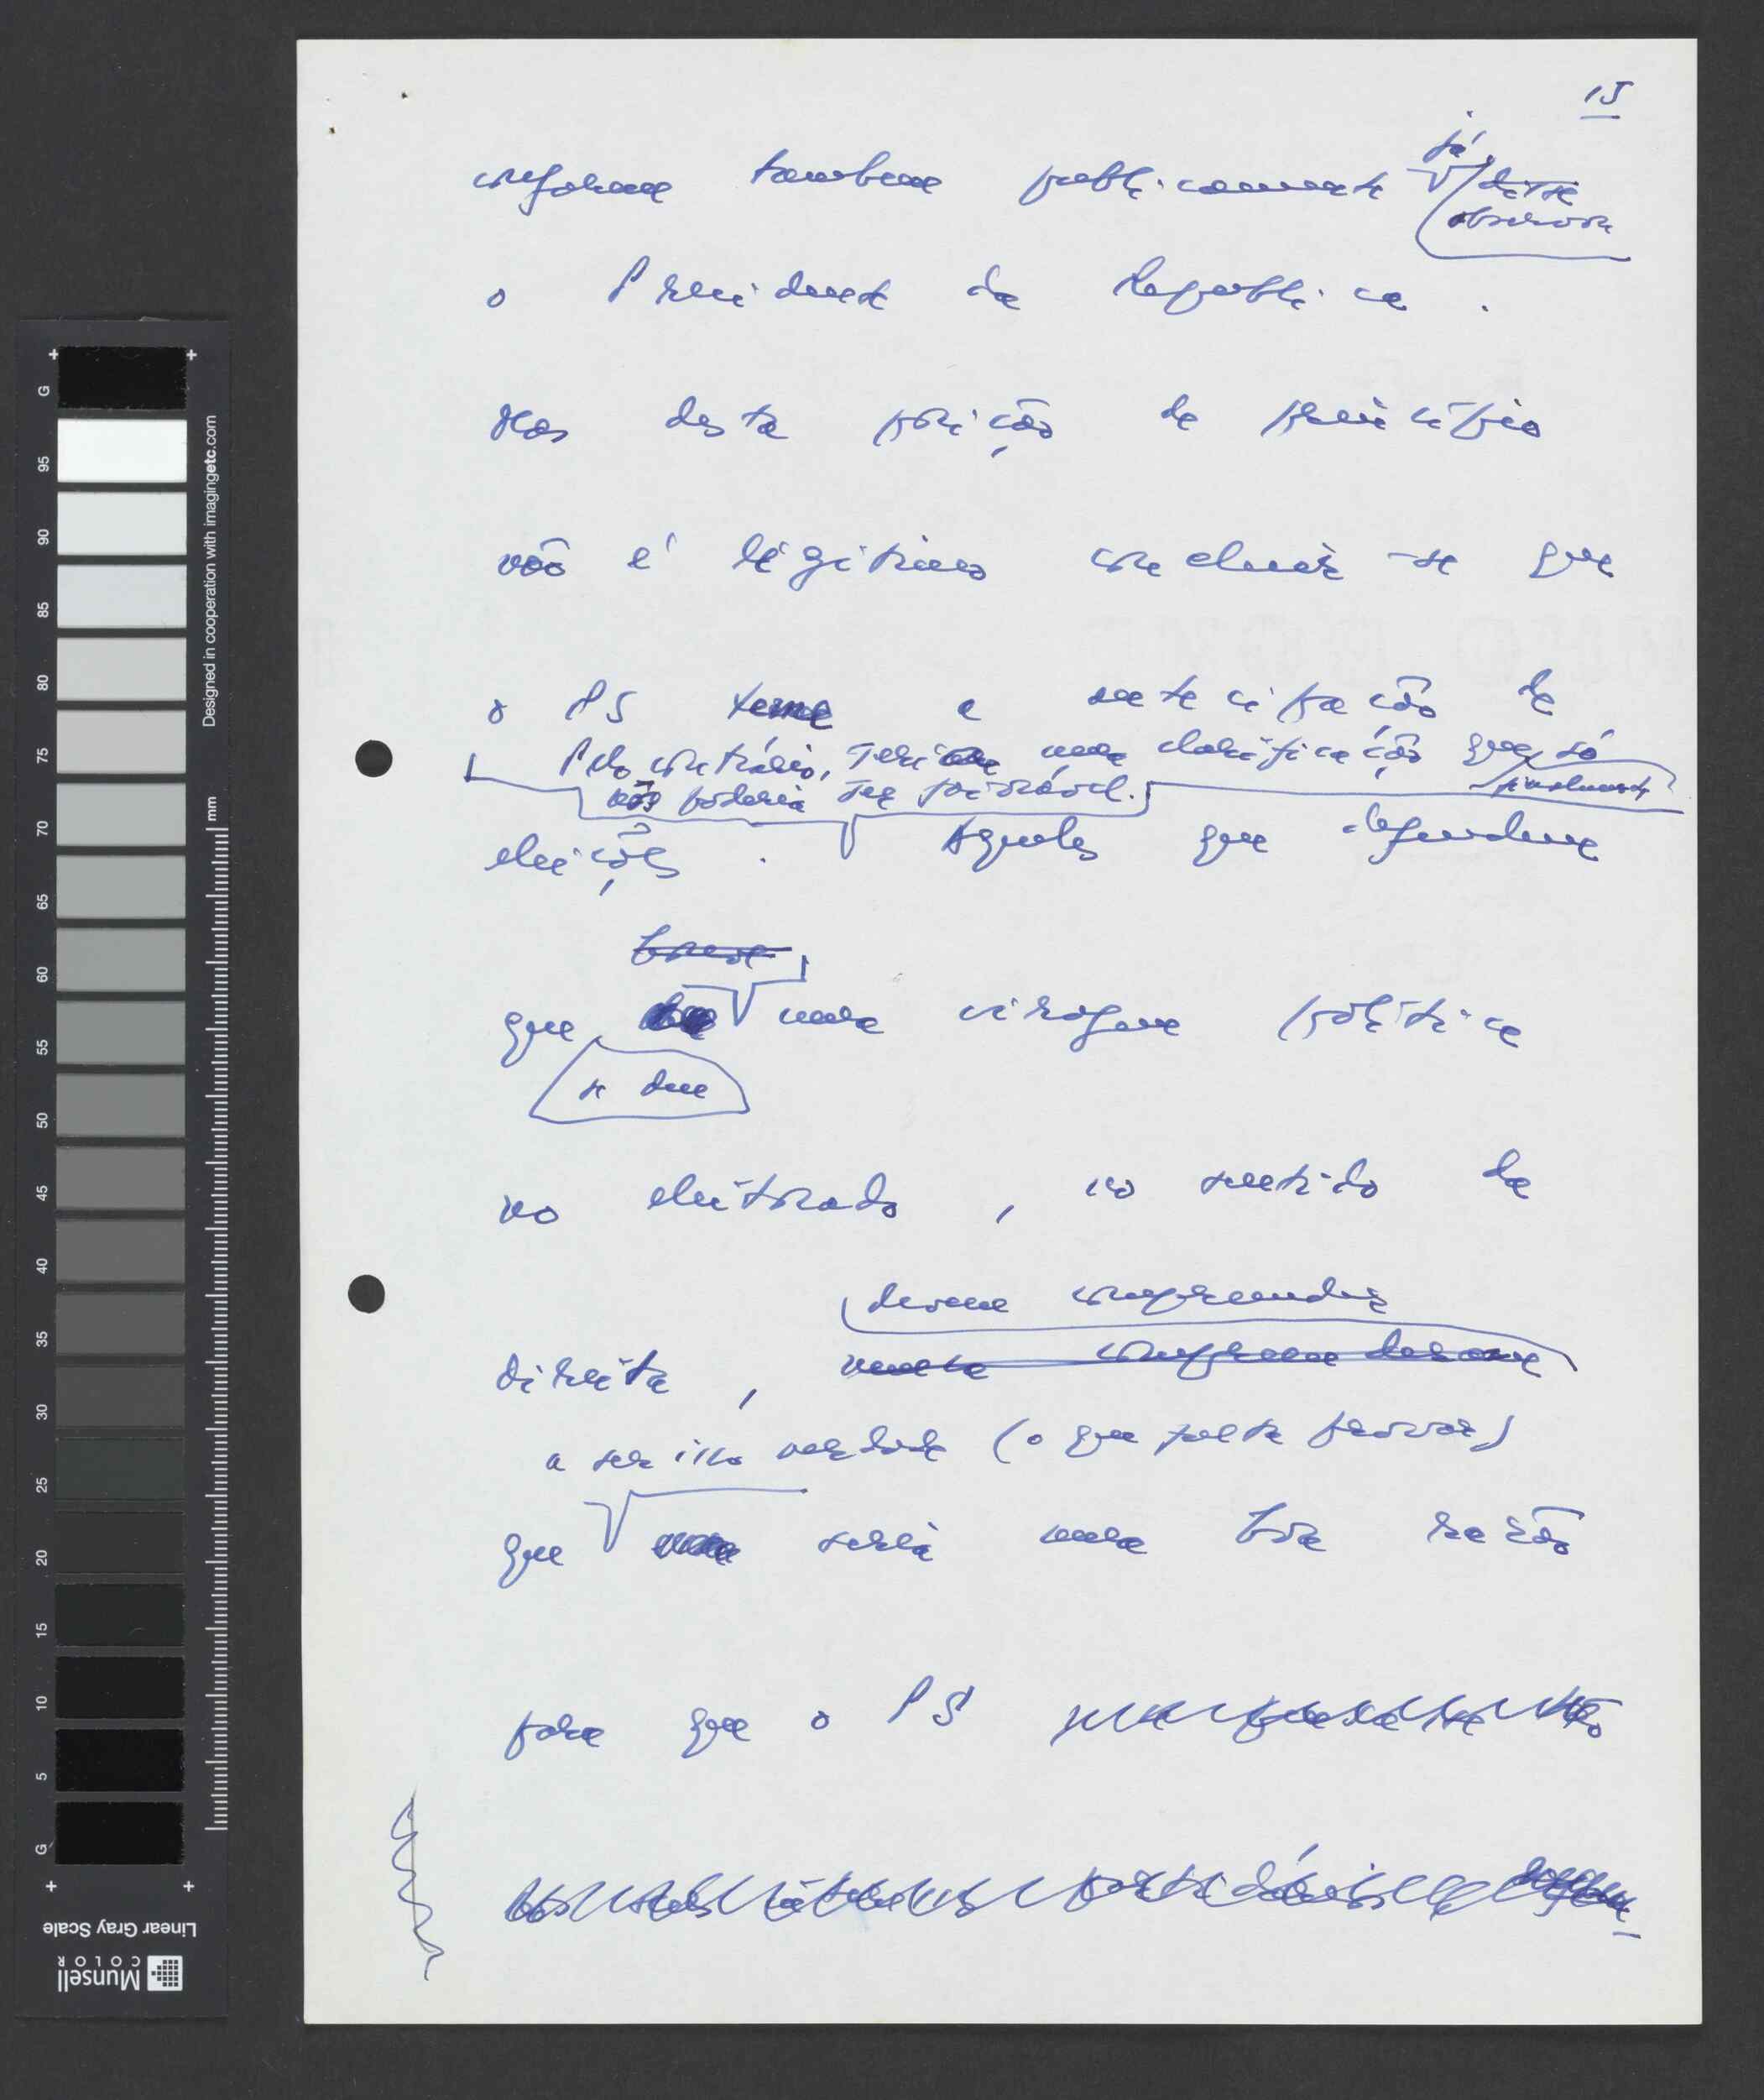 15
conforme também publicamente já disse
observou
o Presidente da Republica.
Mas desta posição de princípio
não é legítimo concluir-se que
o PS teme a antecipação de
Pelo contrário, seria uma clarificação que só
não poderia ser favorável.
eleições. Aqueles que defendem
houve
que uma viragem política
se deu
no eleitorado, no sentido da
devem compreender
direita, nunca compreenderam
a ser isso verdade (o que falta provar)
que seria uma boa razão
para que o PS
partidários
G 95 90 85 80 75 70 65 60 55 50 45 40 35 30 25 20 15 10 5 G
mm
Designed in cooperation with imagingetc.com
Linear Gray Scale
Munsell
COLOR